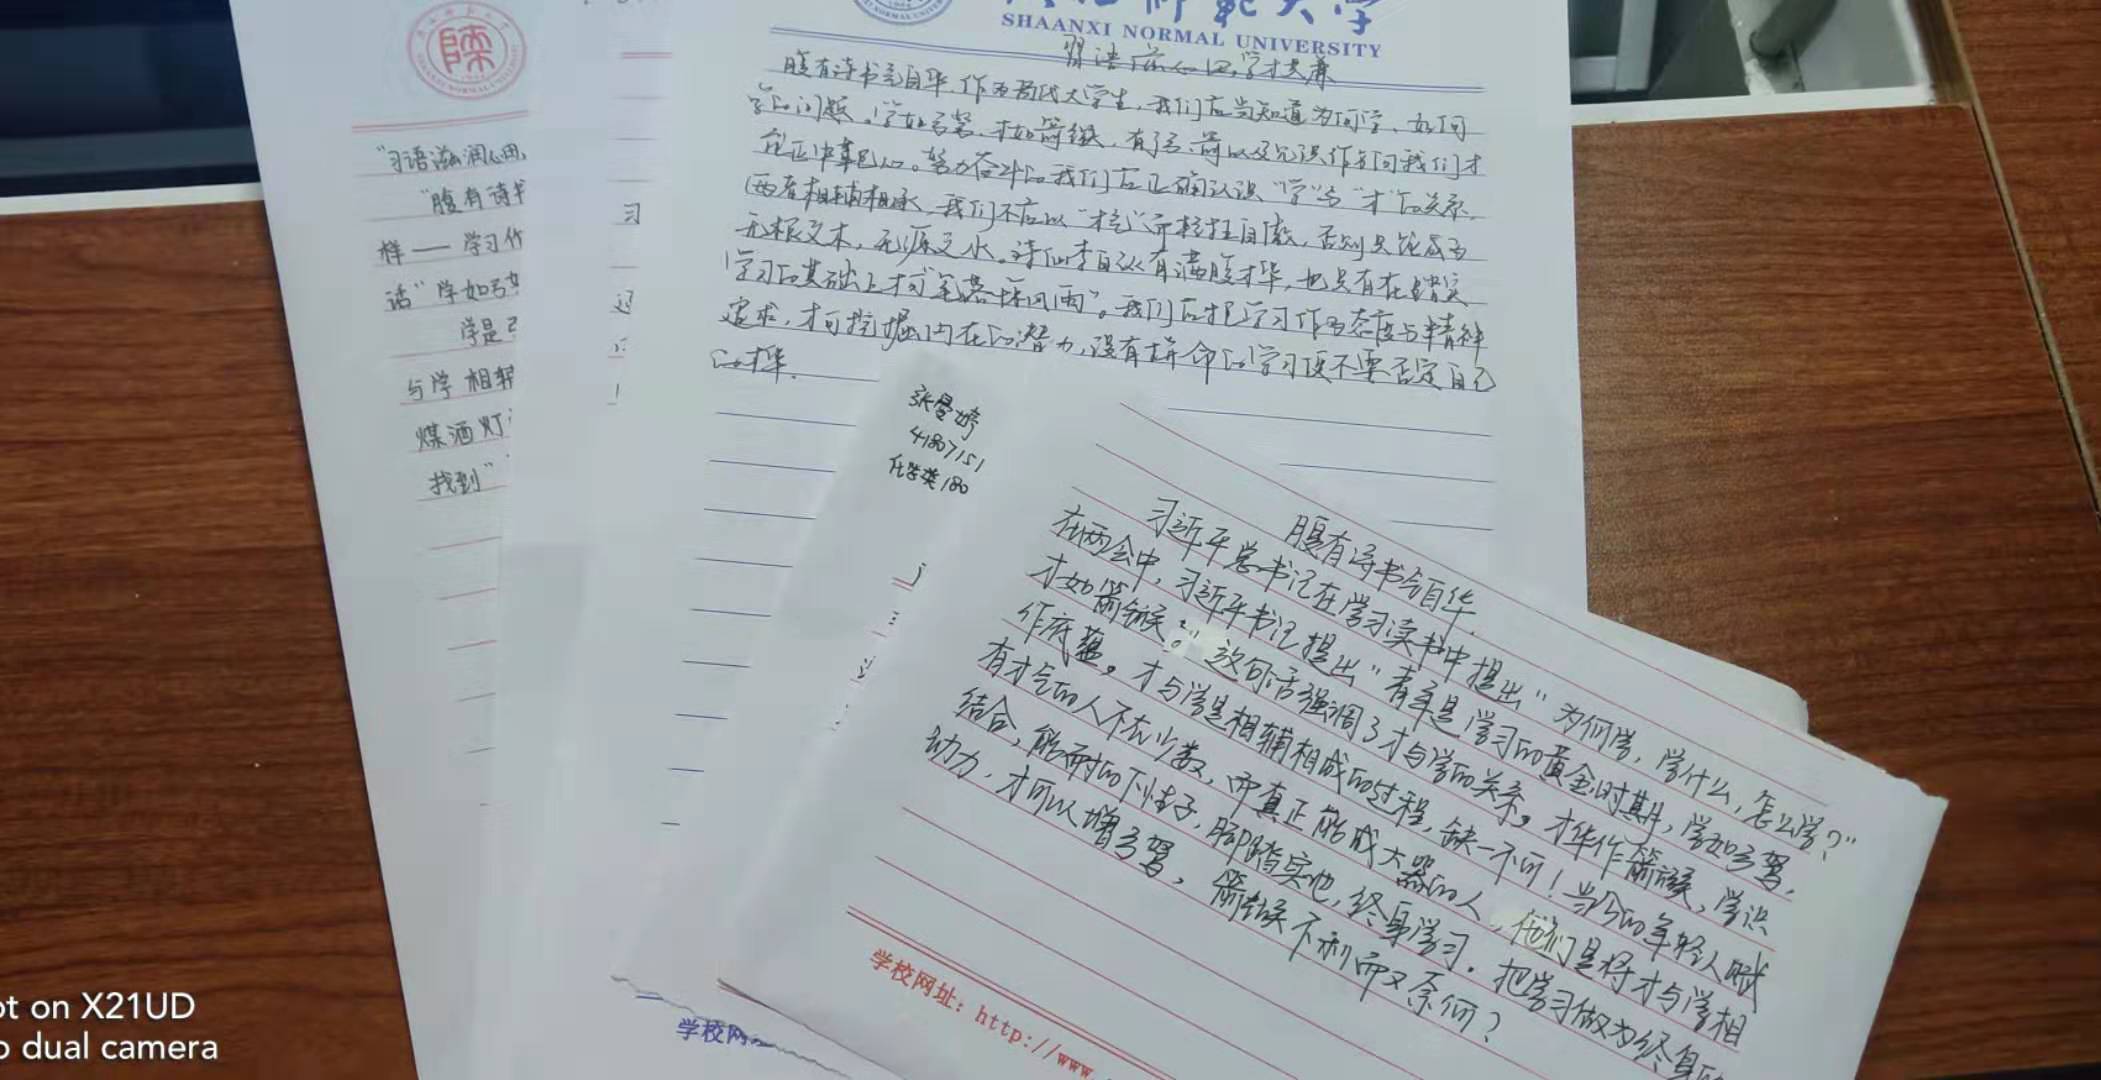 "习语滋润心田,
"腹有诗书
样——学习作
话"学如弓弩
学是
与学相辅
煤酒灯
找到"
习
SHAANXI NORMAL UNIVERSITY
习语润心田,学才共兼
腹有诗书气自华,作为当代大学生,我们应当知道为何学、如何
学的问题。"学如弓弩,才如箭镞,有弓、箭以及见识作方向我们才
能正中靶心。努力奋斗的我们应正确认识"学"与"才"的关系,
两者相辅相承,我们不应以"才气"而轻狂自傲,否则只能成为
无根之木,无源之水。诗仙李白纵有满腹才华,也只有在踏实
学习的基础上才可"笔落惊风雨"。我们应把学习作为态度与精神
追求,才可挖掘内在的潜力,没有拼命的学习便不要否定自己
的才华.
张曼婷
41807151
化学类180
腹有诗书气自华.
习近平总书记在学习读书中提出"为何学,学什么,怎么学?"
在两会中,习近平书记提出"青年是学习的黄金时期,学如弓弩,
才如箭镞。"这句话强调了才与学的关系,才华作箭镞,学识
作底蕴。才与学是相辅相成的过程,缺一不可!当今的年轻人赋
有才气的人不在少数,而真正能成大器的人,他们是将才与学相
结合,能耐的下性子,脚踏实地,终身学习。把学习做为终身的
动力,才可以增弓弩,箭镞不利而又奈何?
学校网址:http://www.
学校网
ot on X21UD
o dual camera